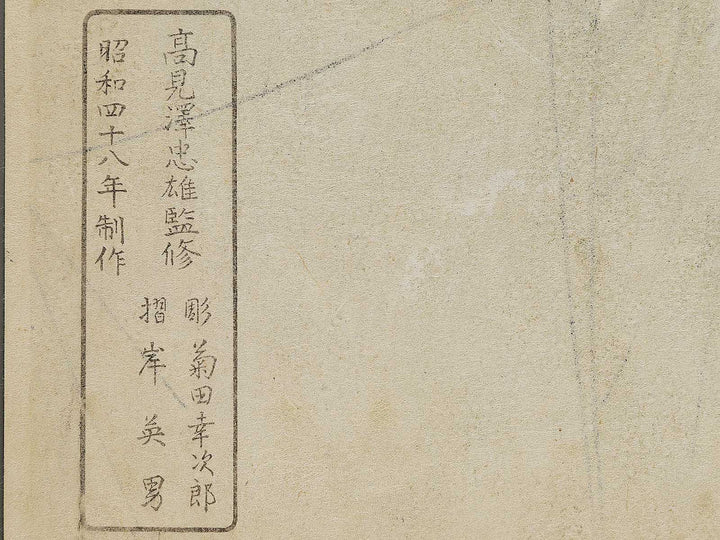 高見澤忠雄監修
彫 菊田幸次郎
摺 岸英男
昭和四十八年制作